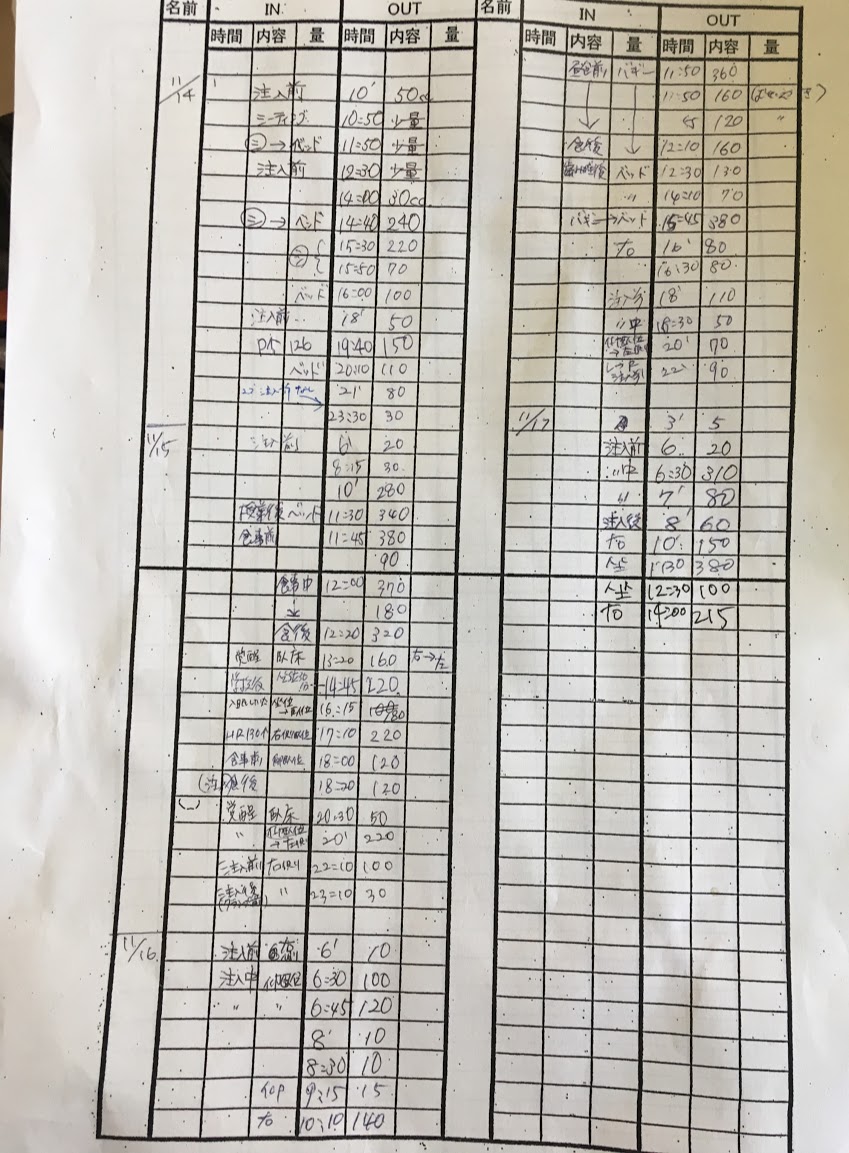 名前 IN OUT
時間 内容 量 時間 内容 量
11/14 注入前 10' 50cc
シーティング 10:50 少量
シ→ベッド 11:50 少量
注入前 12:30 少量
14:00 30cc
シ→ベッド 14:40 240
シ 15:30 220
15:50 70
ベッド 16:00 100
注入前 18' 50
19:40 150
ベッド 20:10 110
注入前 21' 80
23:30 30
11/15 注入前 6' 20
8:15 30
10' 280
授業後 ベッド 11:30 340
食事前 11:45 380
90
食事中 12:00 370
↓ 180
食後 12:20 320
覚醒 臥床 13:20 160 右→左
14:45 220
16:15
右側臥位 17:10 220
食事前 仰臥位 18:00 120
(注)食後 18:20 120
覚醒 臥床 20:30 50
〃 仰臥位→左側 20' 220
注入前 右側 22:10 100
注入後 〃 23:10 30
11/16 注入前 6' 10
注入中 仰臥位 6:30 100
〃 〃 6:45 120
8' 10
8:30 10
9:15 15
右 10:10 140
名前 IN OUT
時間 内容 量 時間 内容 量
昼食前 バギー 11:50 360
11:50 160
120 〃
食後 12:10 160
ベッド 12:30 130
〃 14:10 70
バギー→ベッド 15:45 380
右 16' 80
16:30 80
注入前 18' 110
〃中 18:30 50
仰臥位→左側 20' 70
22' 90
11/17 3' 5
注入前 6 20
〃中 6:30 310
〃 7' 80
注入後 8' 60
右 10' 150
坐 11:30 380
坐 12:30 100
右 14:00 215